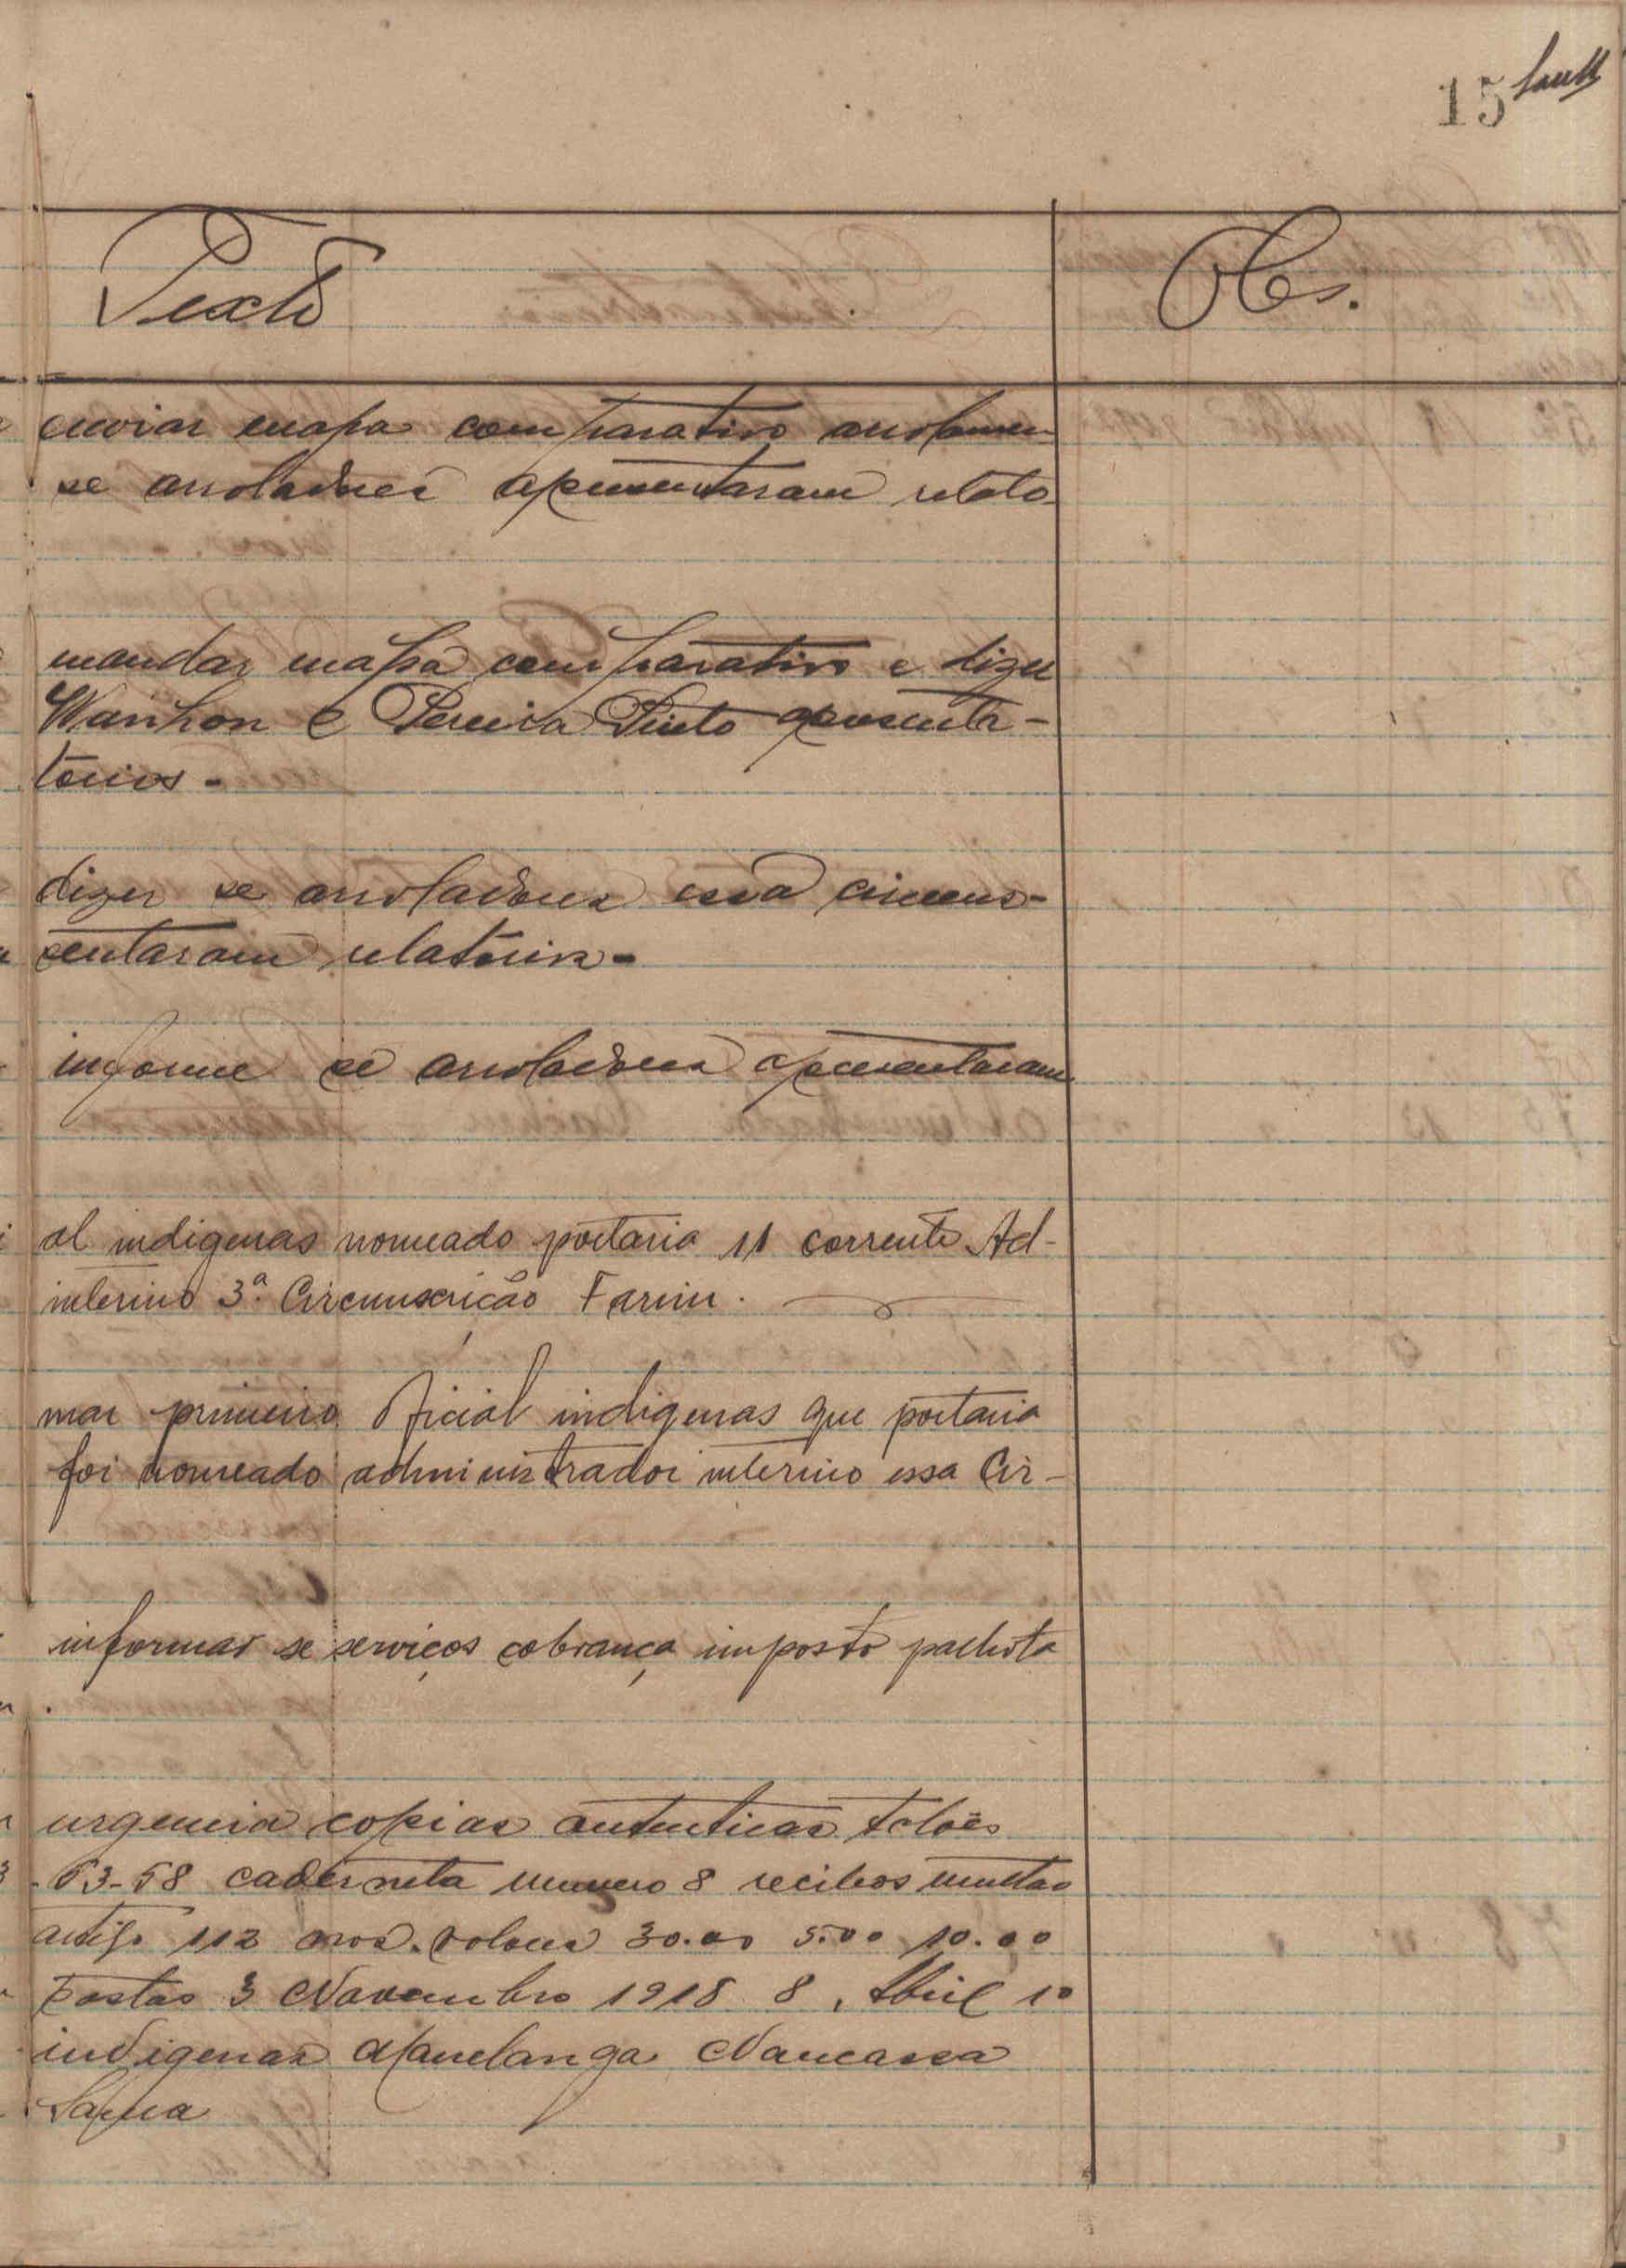 15
Texto Obs.
enviar mapa comparativo arrolamen
se arroladores apresentaram relato
mandar mapa comparativo e dizer
Wanhon e Pereira Pinto apresenta-
torios -
dizer se arroladores essa circuns-
sentaram relatorios -
informe se arroladores apresentaram
al indigenas nomeado portaria 11 corrente Ad-
interino 3ª Circunscrição Farim.
mar primeiro oficial indigenas que portaria
foi nomeado administrador interino essa Cir-
informar se serviços cobrança imposto palhota
urgencia copias autenticas talões
53-58 caderneta numero 8 recibos multas
artigo 112 30.00 5.00 10.00
postas 3 Novembro 1918 8, Abril 10
indigenas